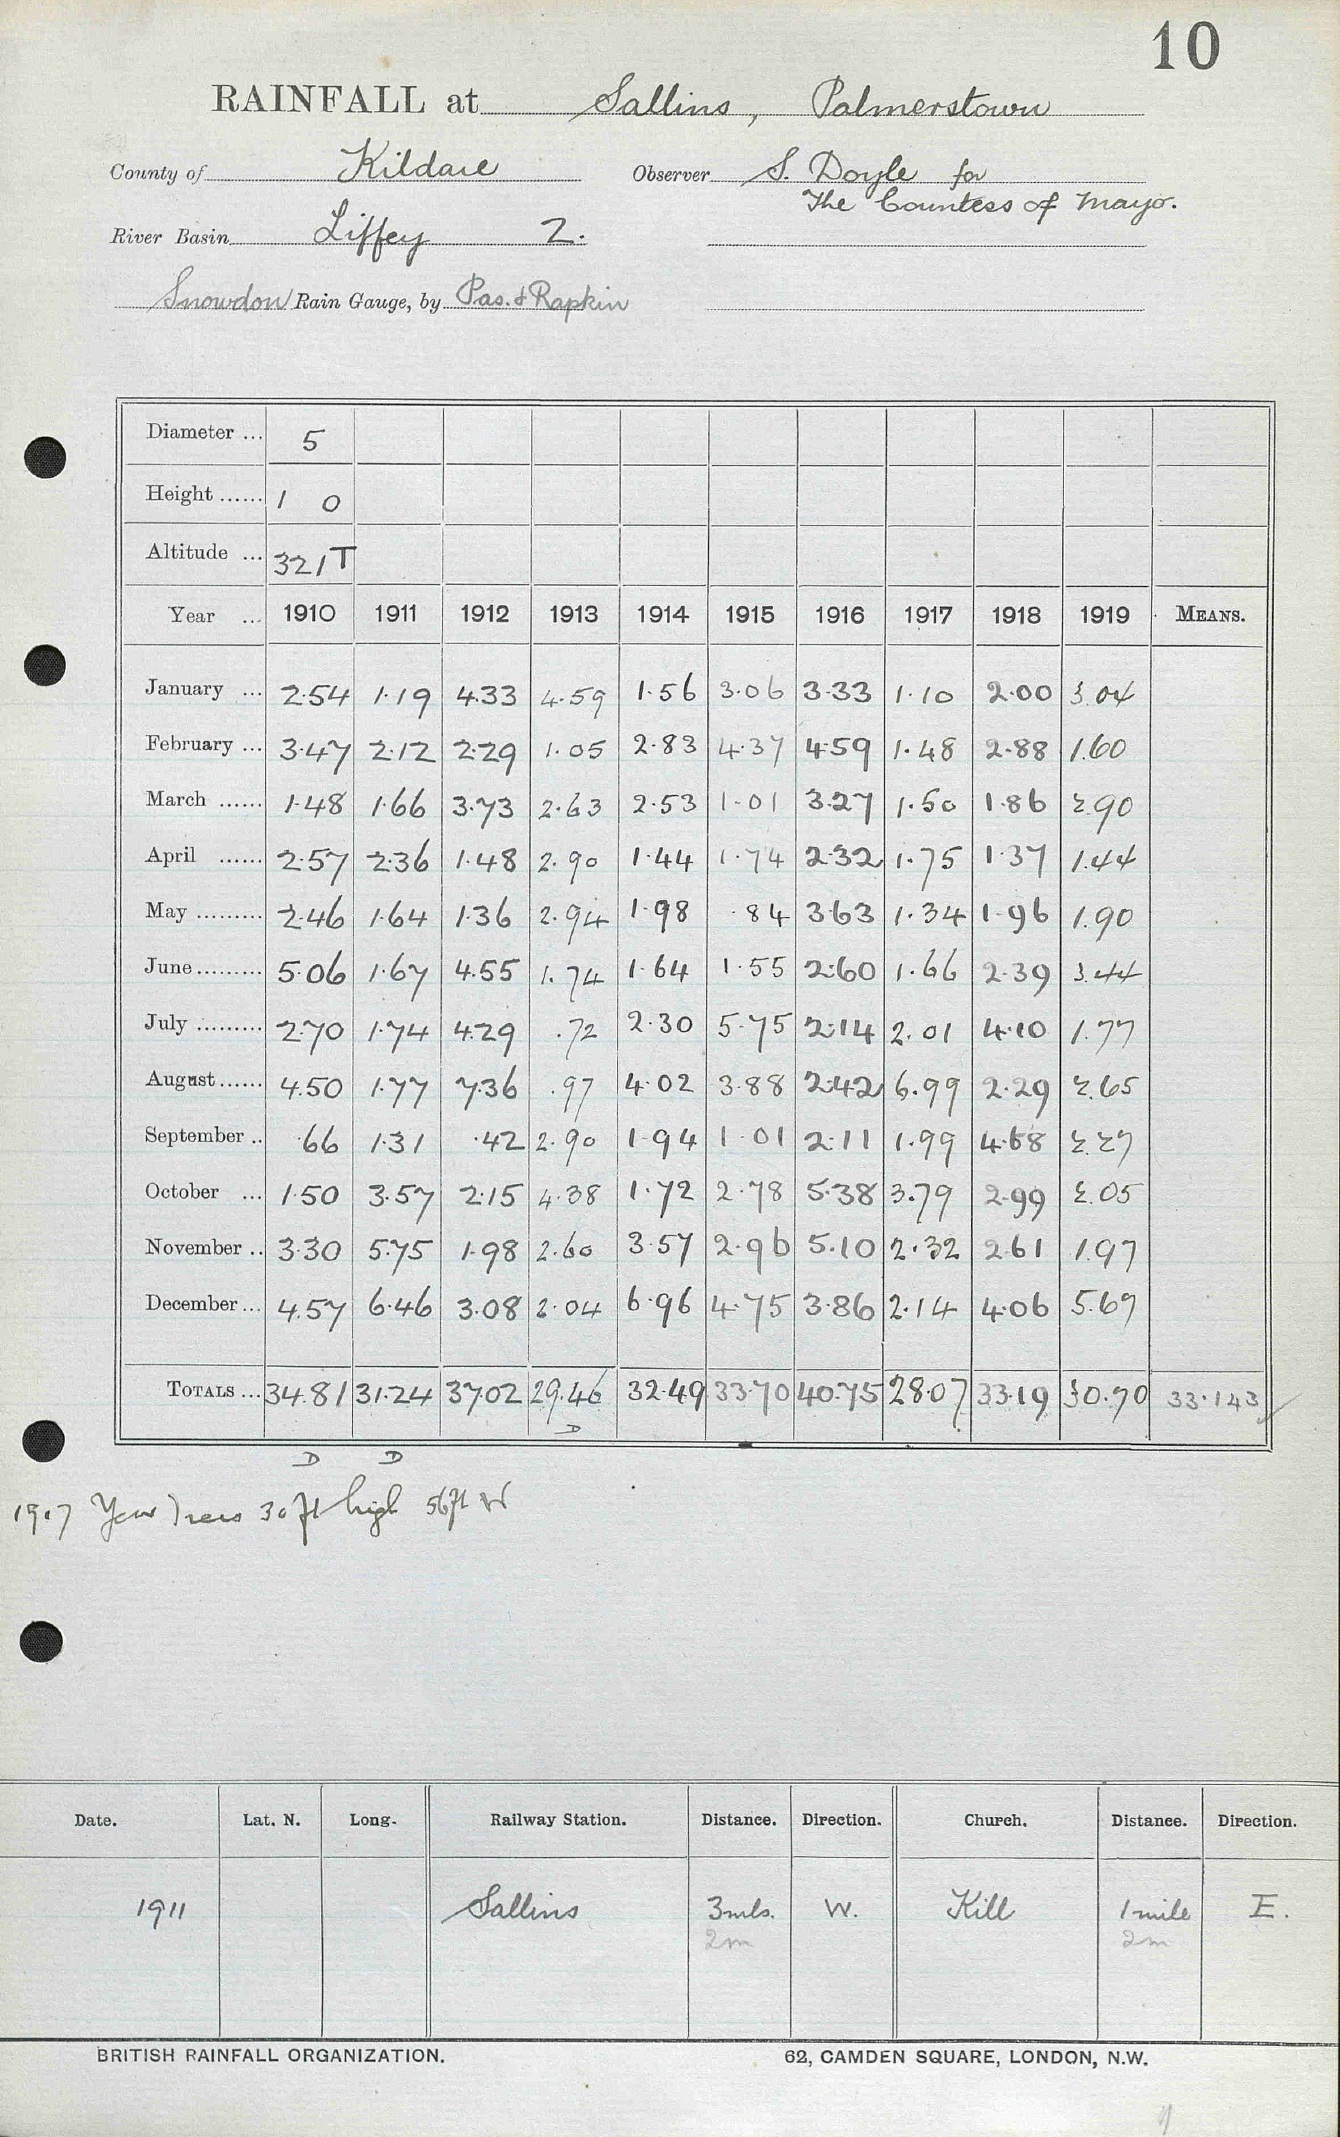 10
RAINFALL at Sallins, Palmerstown
County of Kildare Observer S. Doyle for
The Countess of Mayo.
River Basin Liffey 2.
Snowdon Rain Gauge, by Pas. & Rapkin
Diameter ... 5
Height ...... 1 0
Altitude ... 321T
Year ... 1910 1911 1912 1913 1914 1915 1916 1917 1918 1919 MEANS.
January ... 2.54 1.19 4.33 4.59 1.56 3.06 3.33 1.10 2.00 3.04
February ... 3.47 2.12 2.29 1.05 2.83 4.37 4.59 1.48 2.88 1.60
March ...... 1.48 1.66 3.73 2.63 2.53 1.01 3.27 1.50 1.86 2.90
April ...... 2.57 2.36 1.48 2.90 1.44 1.74 2.32 1.75 1.37 1.44
May ......... 2.46 1.64 1.36 2.94 1.98 .84 3.63 1.34 1.96 1.90
June ......... 5.06 1.67 4.55 1.74 1.64 1.55 2.60 1.66 2.39 3.44
July ......... 2.70 1.74 4.29 .72 2.30 5.75 2.14 2.01 4.10 1.77
August ...... 4.50 1.77 7.36 .97 4.02 3.88 2.42 6.99 2.29 2.65
September .. .66 1.31 .42 2.90 1.94 1.01 2.11 1.99 4.68 2.27
October ... 1.50 3.57 2.15 4.38 1.72 2.78 5.38 3.79 2.99 2.05
November .. 3.30 5.75 1.98 2.60 3.57 2.96 5.10 2.32 2.61 1.97
December ... 4.57 6.46 3.08 2.04 6.96 4.75 3.86 2.14 4.06 5.67
TOTALS ... 34.81 31.24 37.02 29.46 32.49 33.70 40.75 28.07 33.19 30.70 33.143
D
D D
1917 Yew Trees 30 ft high 56ft W
Date. Lat. N. Long. Railway Station. Distance. Direction. Church. Distance. Direction.
1911 Sallins 3mls. W. Kill 1 mile E.
2m 2m
BRITISH RAINFALL ORGANIZATION. 62, CAMDEN SQUARE, LONDON, N.W.